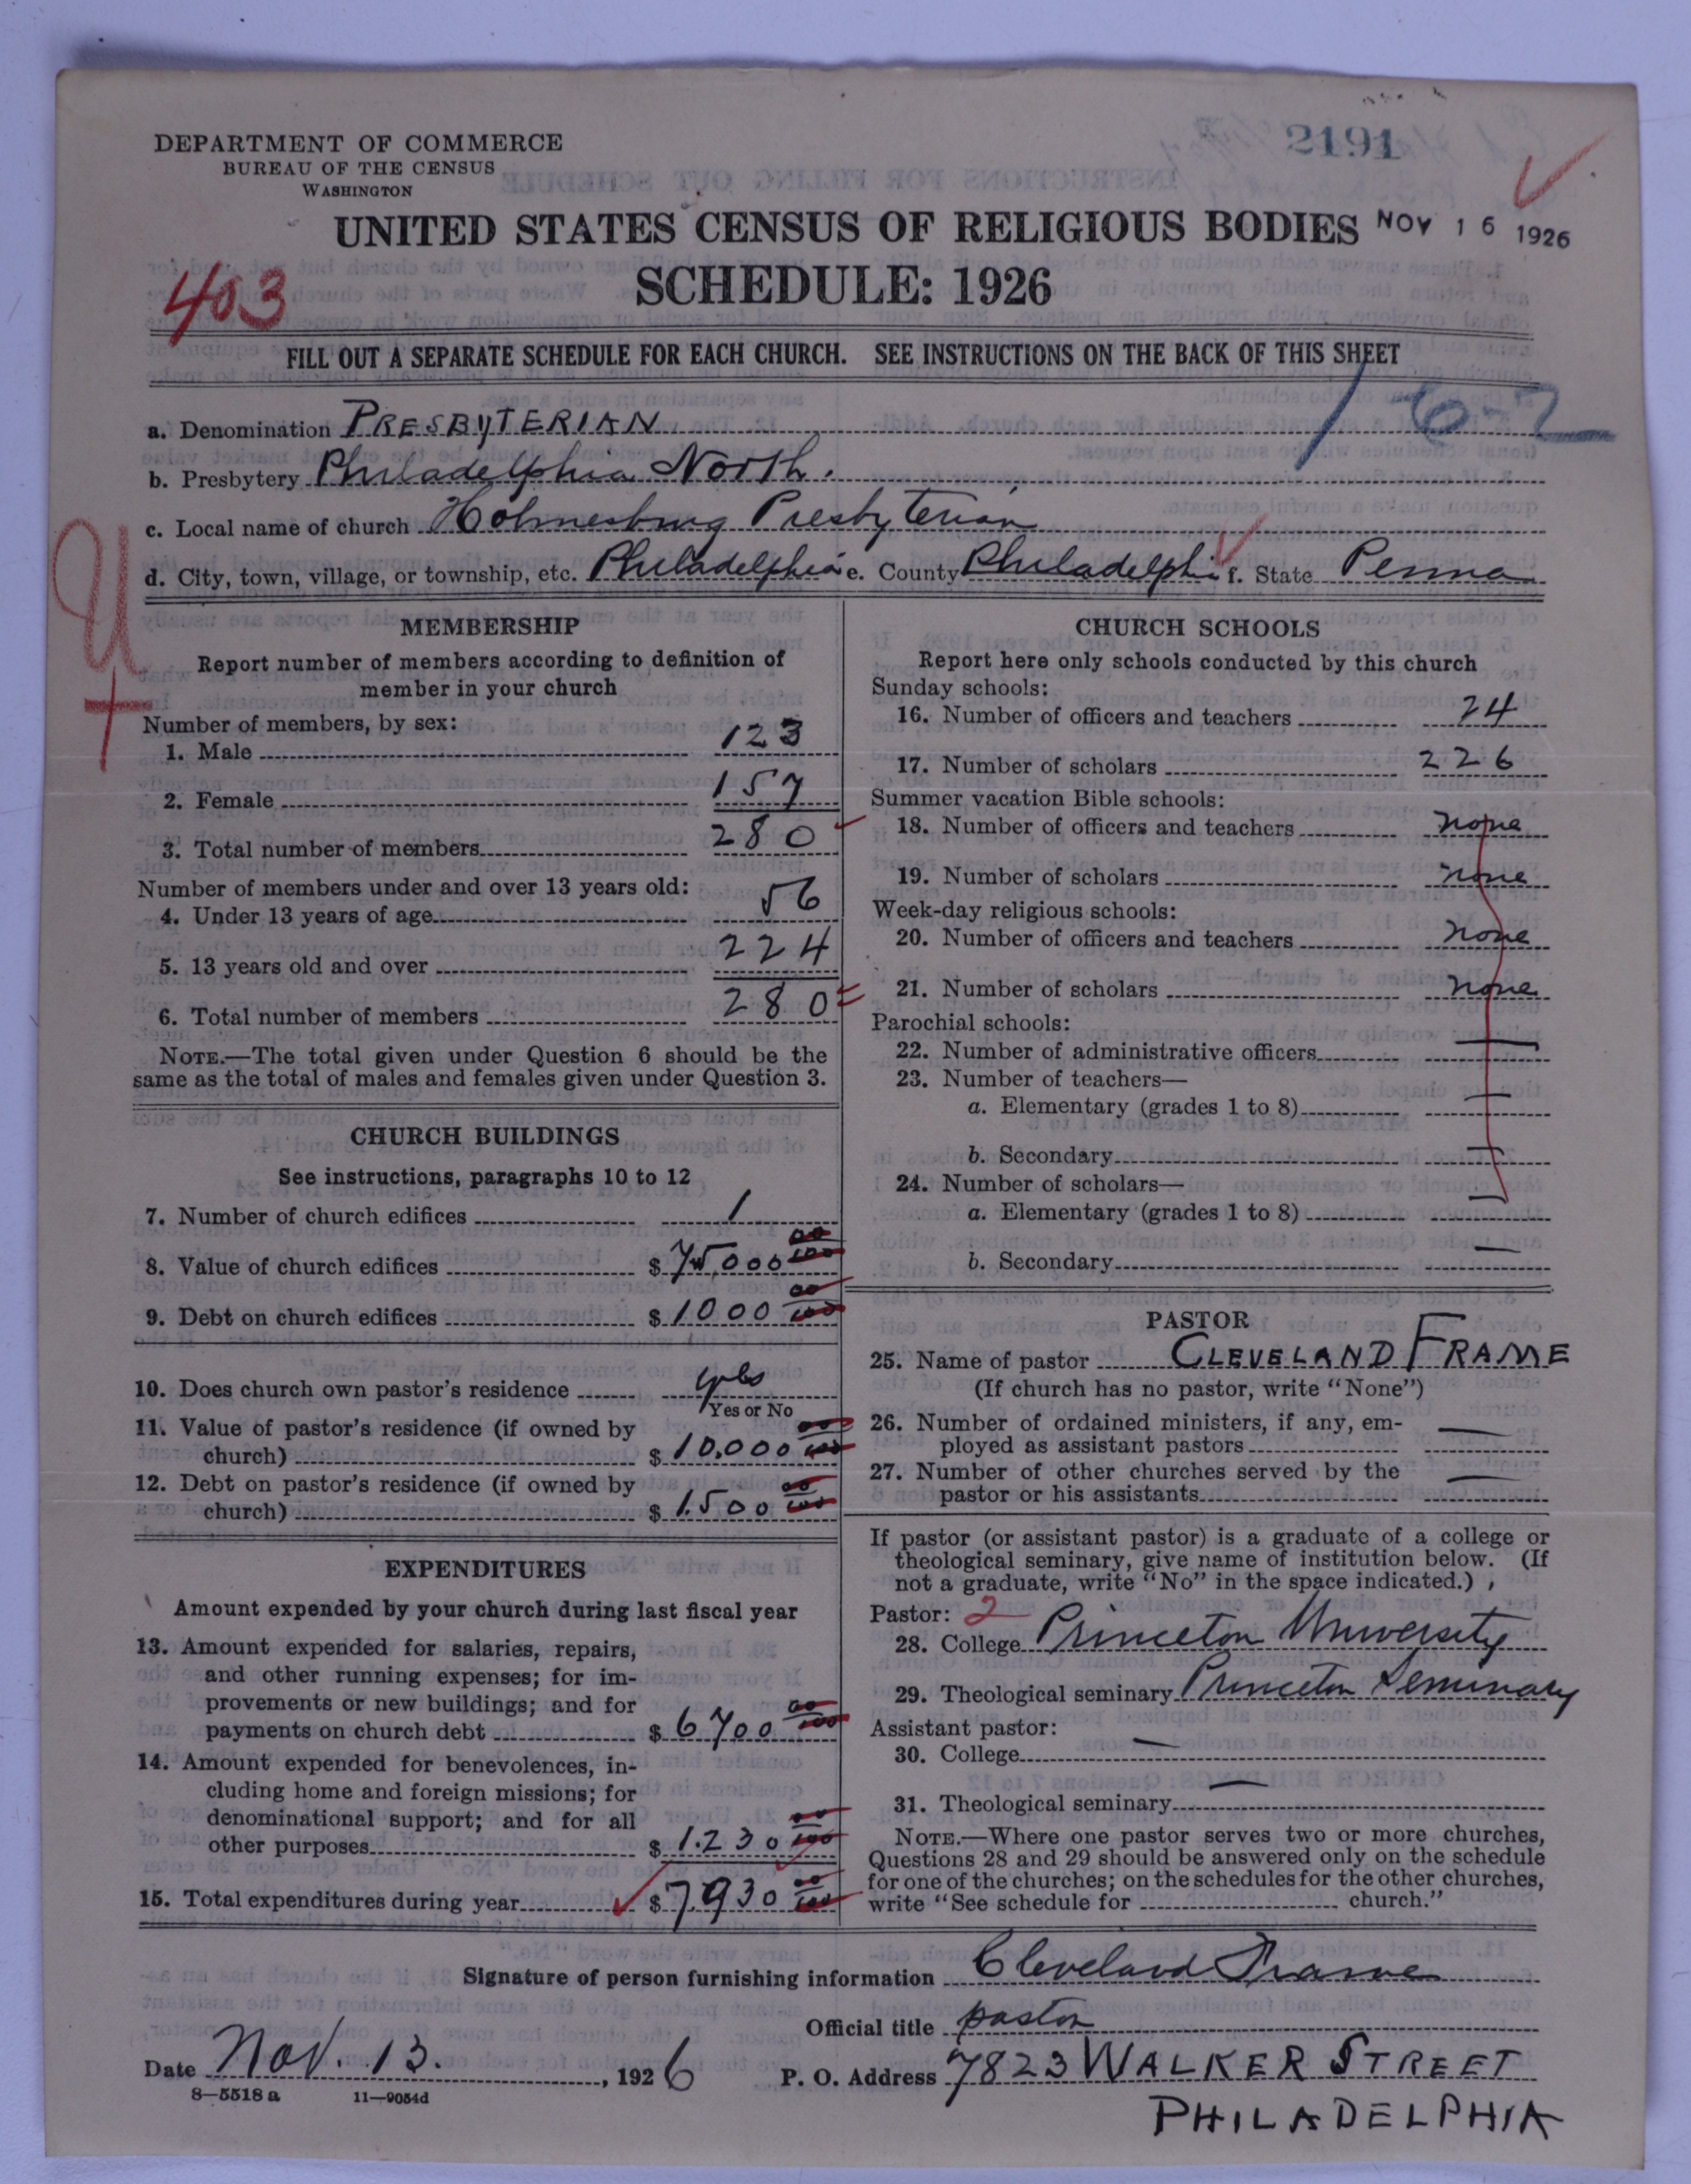 DEPARTMENT OF COMMERCE
BUREAU OF THE CENSUS
WASHINGTON
2191
UNITED STATES CENSUS OF RELIGIOUS BODIES NOV 16 1926
SCHEDULE: 1926
403
FILL OUT A SEPARATE SCHEDULE FOR EACH CHURCH. SEE INSTRUCTIONS ON THE BACK OF THIS SHEET
a. Denomination PRESBYTERIAN
b. Presbytery Philadelphia North.
c. Local name of church Holmesburg Presbyterian
d. City, town, village, or township, etc. Philadelphia e. County Philadelphia f. State Penna
MEMBERSHIP
Report number of members according to definition of
member in your church
Number of members, by sex:
1. Male 123
2. Female 157
3. Total number of members 280
Number of members under and over 13 years old:
4. Under 13 years of age 56
5. 13 years old and over 224
6. Total number of members 280
NOTE.—The total given under Question 6 should be the
same as the total of males and females given under Question 3.
CHURCH BUILDINGS
See instructions, paragraphs 10 to 12
7. Number of church edifices 1
8. Value of church edifices $ 75,000 00/100
9. Debt on church edifices $ 1000 00/100
10. Does church own pastor's residence yes
Yes or No
11. Value of pastor's residence (if owned by
church) $ 10,000 00/100
12. Debt on pastor's residence (if owned by
church) $ 1.500 00/100
EXPENDITURES
Amount expended by your church during last fiscal year
13. Amount expended for salaries, repairs,
and other running expenses; for im-
provements or new buildings; and for
payments on church debt $ 6700 00/100
14. Amount expended for benevolences, in-
cluding home and foreign missions; for
denominational support; and for all
other purposes $ 1.230 00/100
15. Total expenditures during year $ 7,930 00/100
CHURCH SCHOOLS
Report here only schools conducted by this church
Sunday schools:
16. Number of officers and teachers 24
17. Number of scholars 226
Summer vacation Bible schools:
18. Number of officers and teachers none
19. Number of scholars none
Week-day religious schools:
20. Number of officers and teachers none
21. Number of scholars none
Parochial schools:
22. Number of administrative officers —
23. Number of teachers—
a. Elementary (grades 1 to 8) —
b. Secondary —
24. Number of scholars—
a. Elementary (grades 1 to 8) —
b. Secondary —
PASTOR
25. Name of pastor CLEVELAND FRAME
(If church has no pastor, write "None")
26. Number of ordained ministers, if any, em-
ployed as assistant pastors —
27. Number of other churches served by the
pastor or his assistants —
If pastor (or assistant pastor) is a graduate of a college or
theological seminary, give name of institution below. (If
not a graduate, write "No" in the space indicated.)
Pastor: 2
28. College Princeton University
29. Theological seminary Princeton Seminary
Assistant pastor:
30. College —
31. Theological seminary —
NOTE.—Where one pastor serves two or more churches,
Questions 28 and 29 should be answered only on the schedule
for one of the churches; on the schedules for the other churches,
write "See schedule for church."
Signature of person furnishing information Cleveland Frame
Official title pastor
Date Nov. 13. , 1926 P. O. Address 7823 WALKER STREET
PHILADELPHIA
8—5518 a 11—9054d